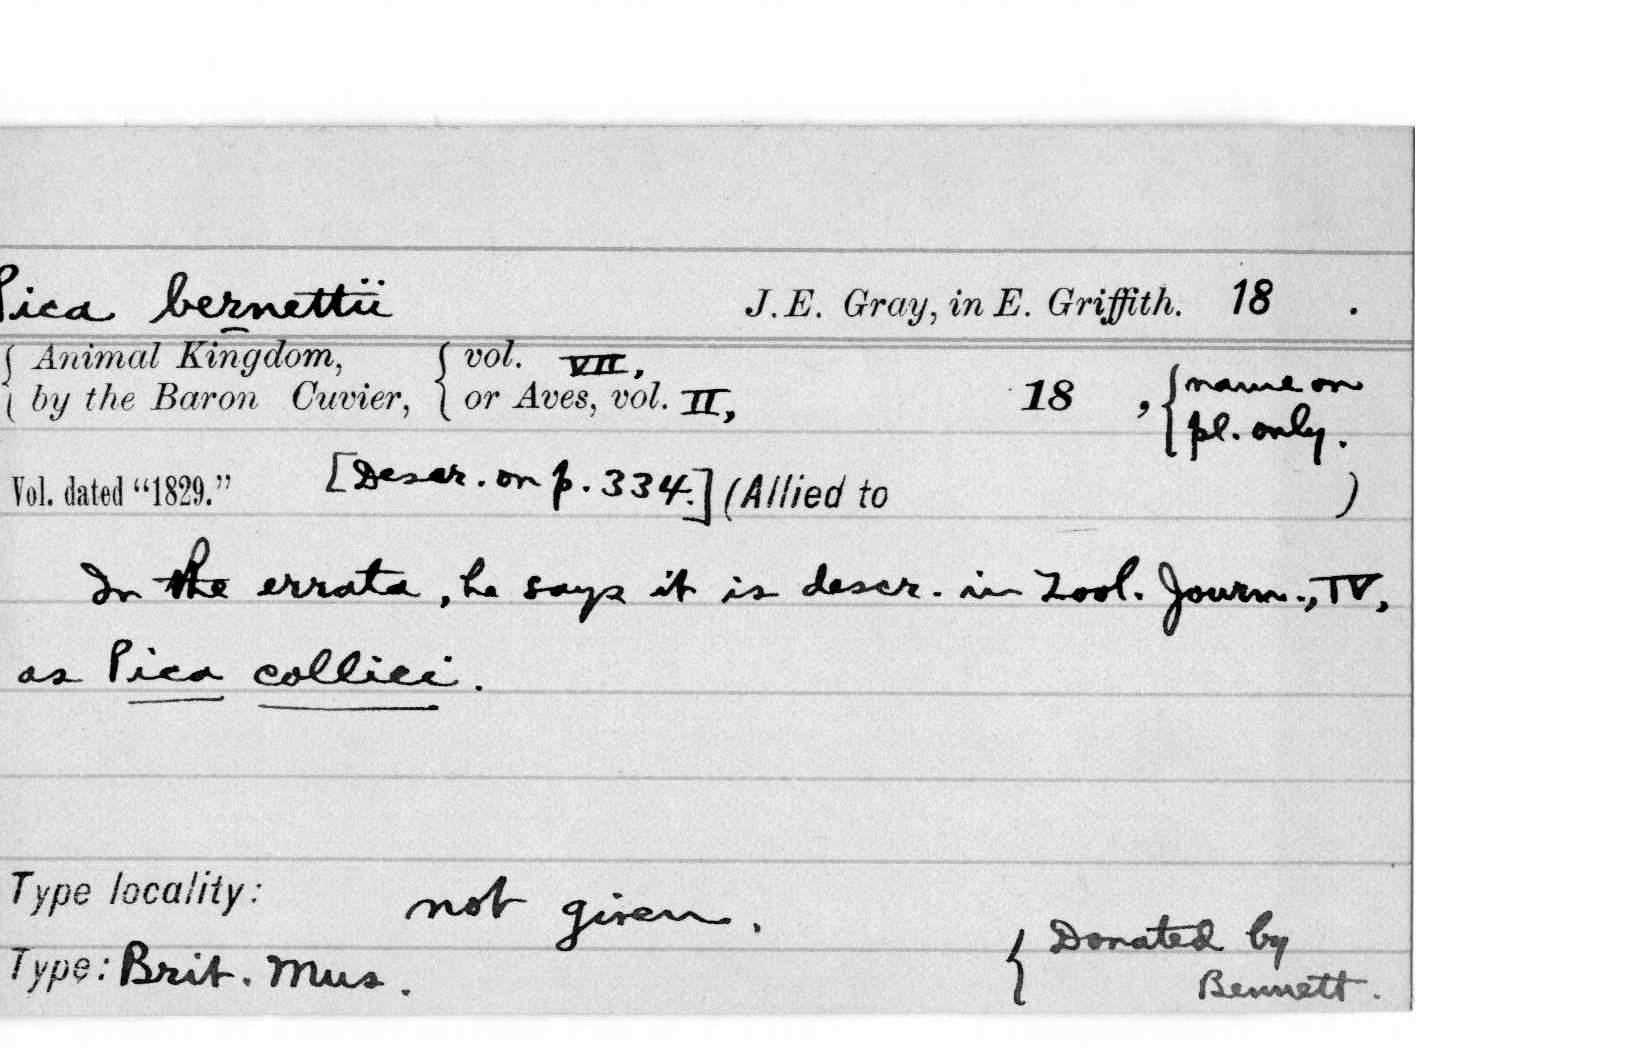 Pica bernettii J. E. Gray, in E. Griffith. 18 .
{ Animal Kingdom, { vol. VII, { name on
{ by the Baron Cuvier, { or Aves, vol. II, 18 , { pl. only.
Vol. dated “1829.” [Descr. on p. 334.] (Allied to )
In the errata, he says it is descr. in Zool. Journ., IV,
as Pica colliei.
Type locality: not given.
Type: Brit. Mus. { Donated by
Bennett.